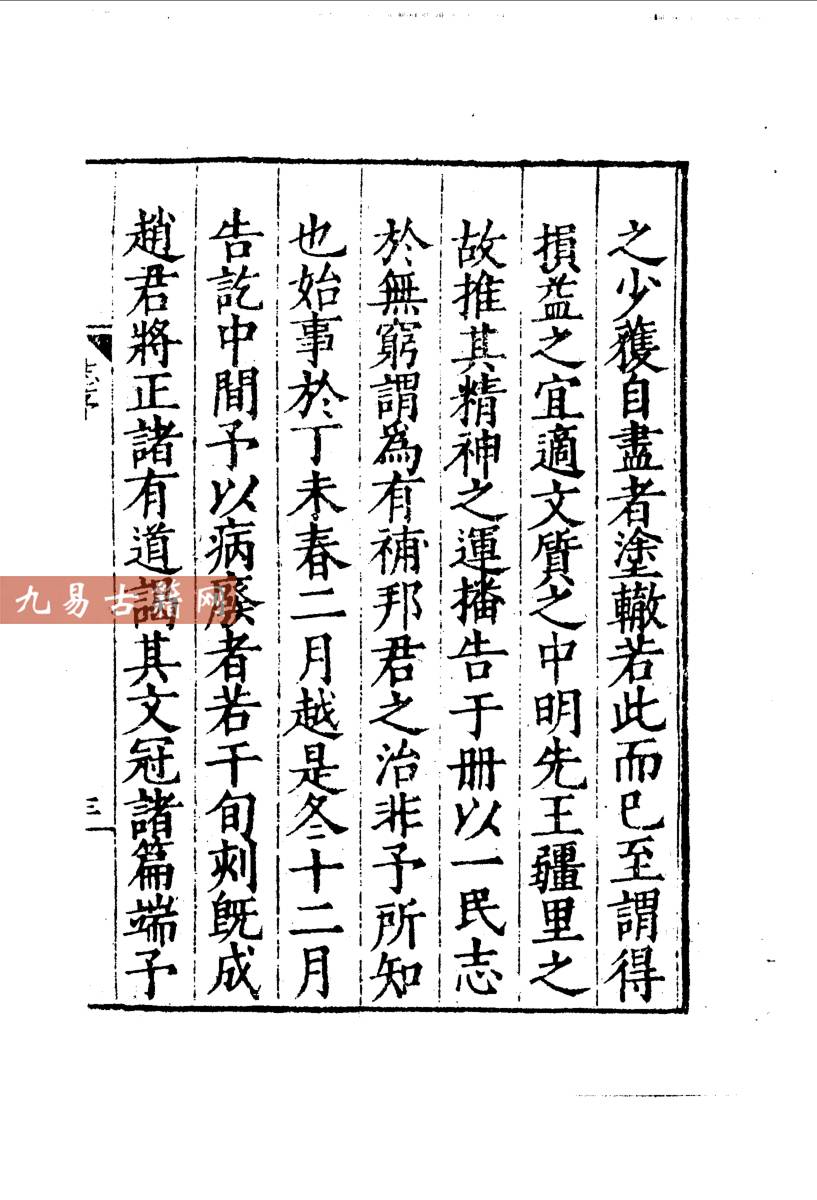 之少獲自盡者塗轍若此而已至謂得
損益之宜適文質之中明先王疆里之
故推其精神之運播告于冊以一民志
於無窮謂為有補邦君之治非予所知
也始事於丁未春二月越是冬十二月
告訖中間予以病廢者若干旬刻既成
趙君將正諸有道謁其文冠諸篇端予
志序
三
九易古籍网